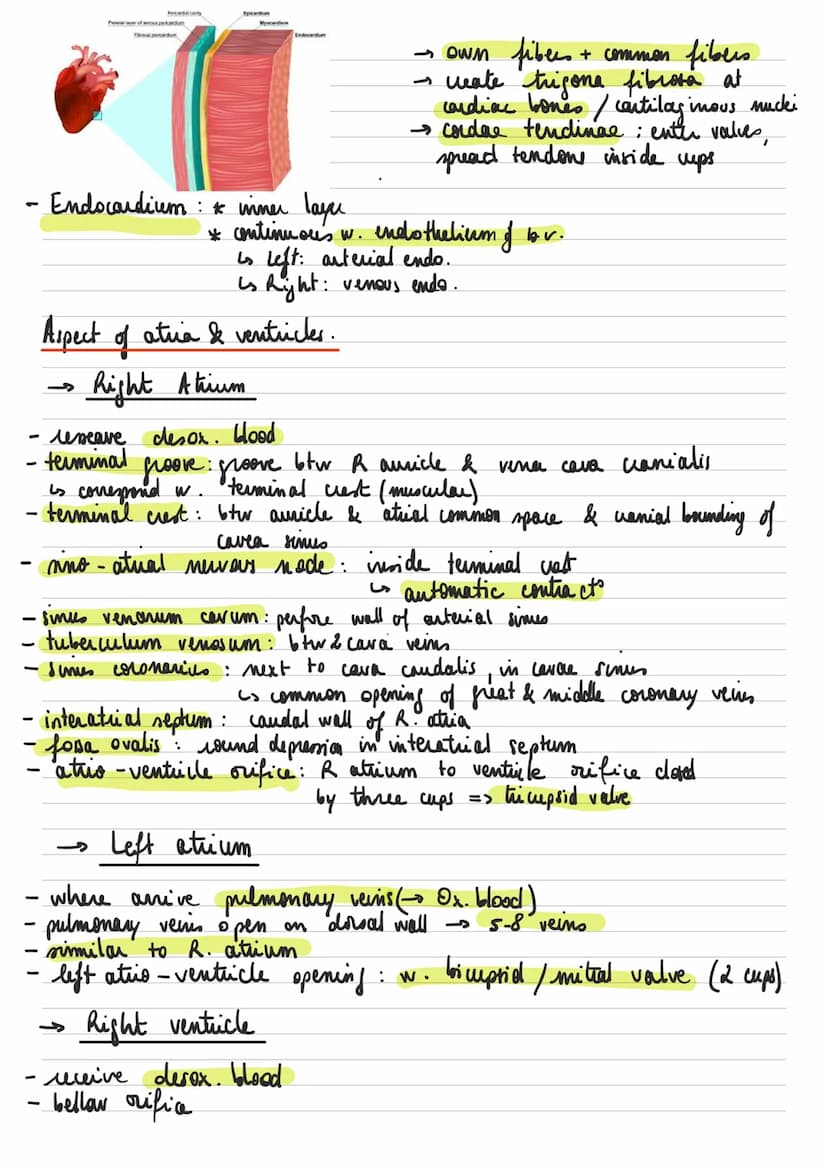 Pericardial cavity
Epicardium
Parietal layer of serous pericardium
Myocardium
Fibrous pericardium
Endocardium
→ own fibers + common fibers
→ create trigona fibrosa at
cardiac bones / cartilaginous nuclei
→ cordae tendinae : enter valves,
spread tendons inside cups
- Endocardium : * inner layer
* continuous w. endothelium of b.v.
↳ Left: arterial endo.
↳ Right: venous endo.
Aspect of atria & ventricles.
→ Right Atrium
- receave desox. blood
- terminal groove: groove btw R auricle & vena cava cranialis
↳ correspond w. terminal crest (muscular)
- terminal crest: btw auricle & atrial common space & cranial bounding of
cavea sinus
- sino-atrial nervous node: inside terminal crest
↳ automatic contract°
- sinus venarum cavum: perfore wall of arterial sinus
- tuberculum venosum: btw 2 cava veins
- sinus coronarius : next to cava caudalis, in cavae sinus
↳ common opening of great & middle coronary veins
- interatrial septum : caudal wall of R. atria
- fossa ovalis : round depression in interatrial septum
- atrio-ventricle orifice: R atrium to ventricle orifice closed
by three cups => tricupsid valve
→ Left atrium
- where arrive pulmonary veins (→ Ox. blood)
- pulmonary veins open on dorsal wall → 5-8 veins
- similar to R. atrium
- left atrio-ventricle opening : w. bicupsid / mitral valve (2 cups)
→ Right ventricle
- receive desox. blood
- bellow orifice